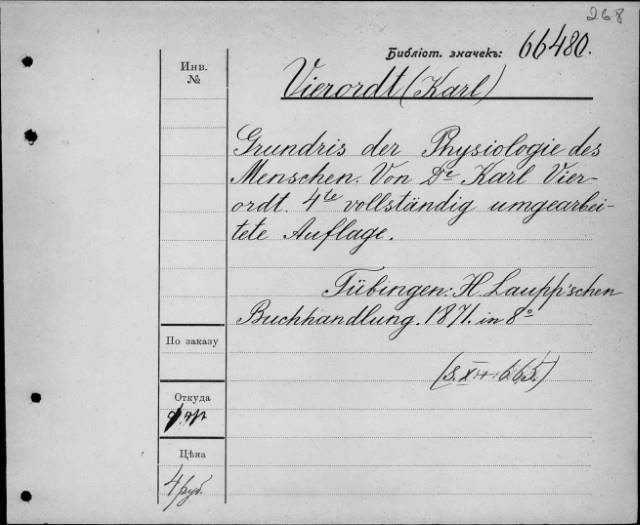 268
Библіот. значекъ: 66480.
Инв.
№
Vierordt (Karl)
Grundris der Physiologie des
Menschen. Von Dr Karl Vier-
ordt. 4te vollständig umgearbei-
tete Auflage.
Tübingen: H. Laupp'schen
Buchhandlung. 1871. in 8o
По заказу
(S. X + 665.)
Откуда
Цѣна
4 руб.